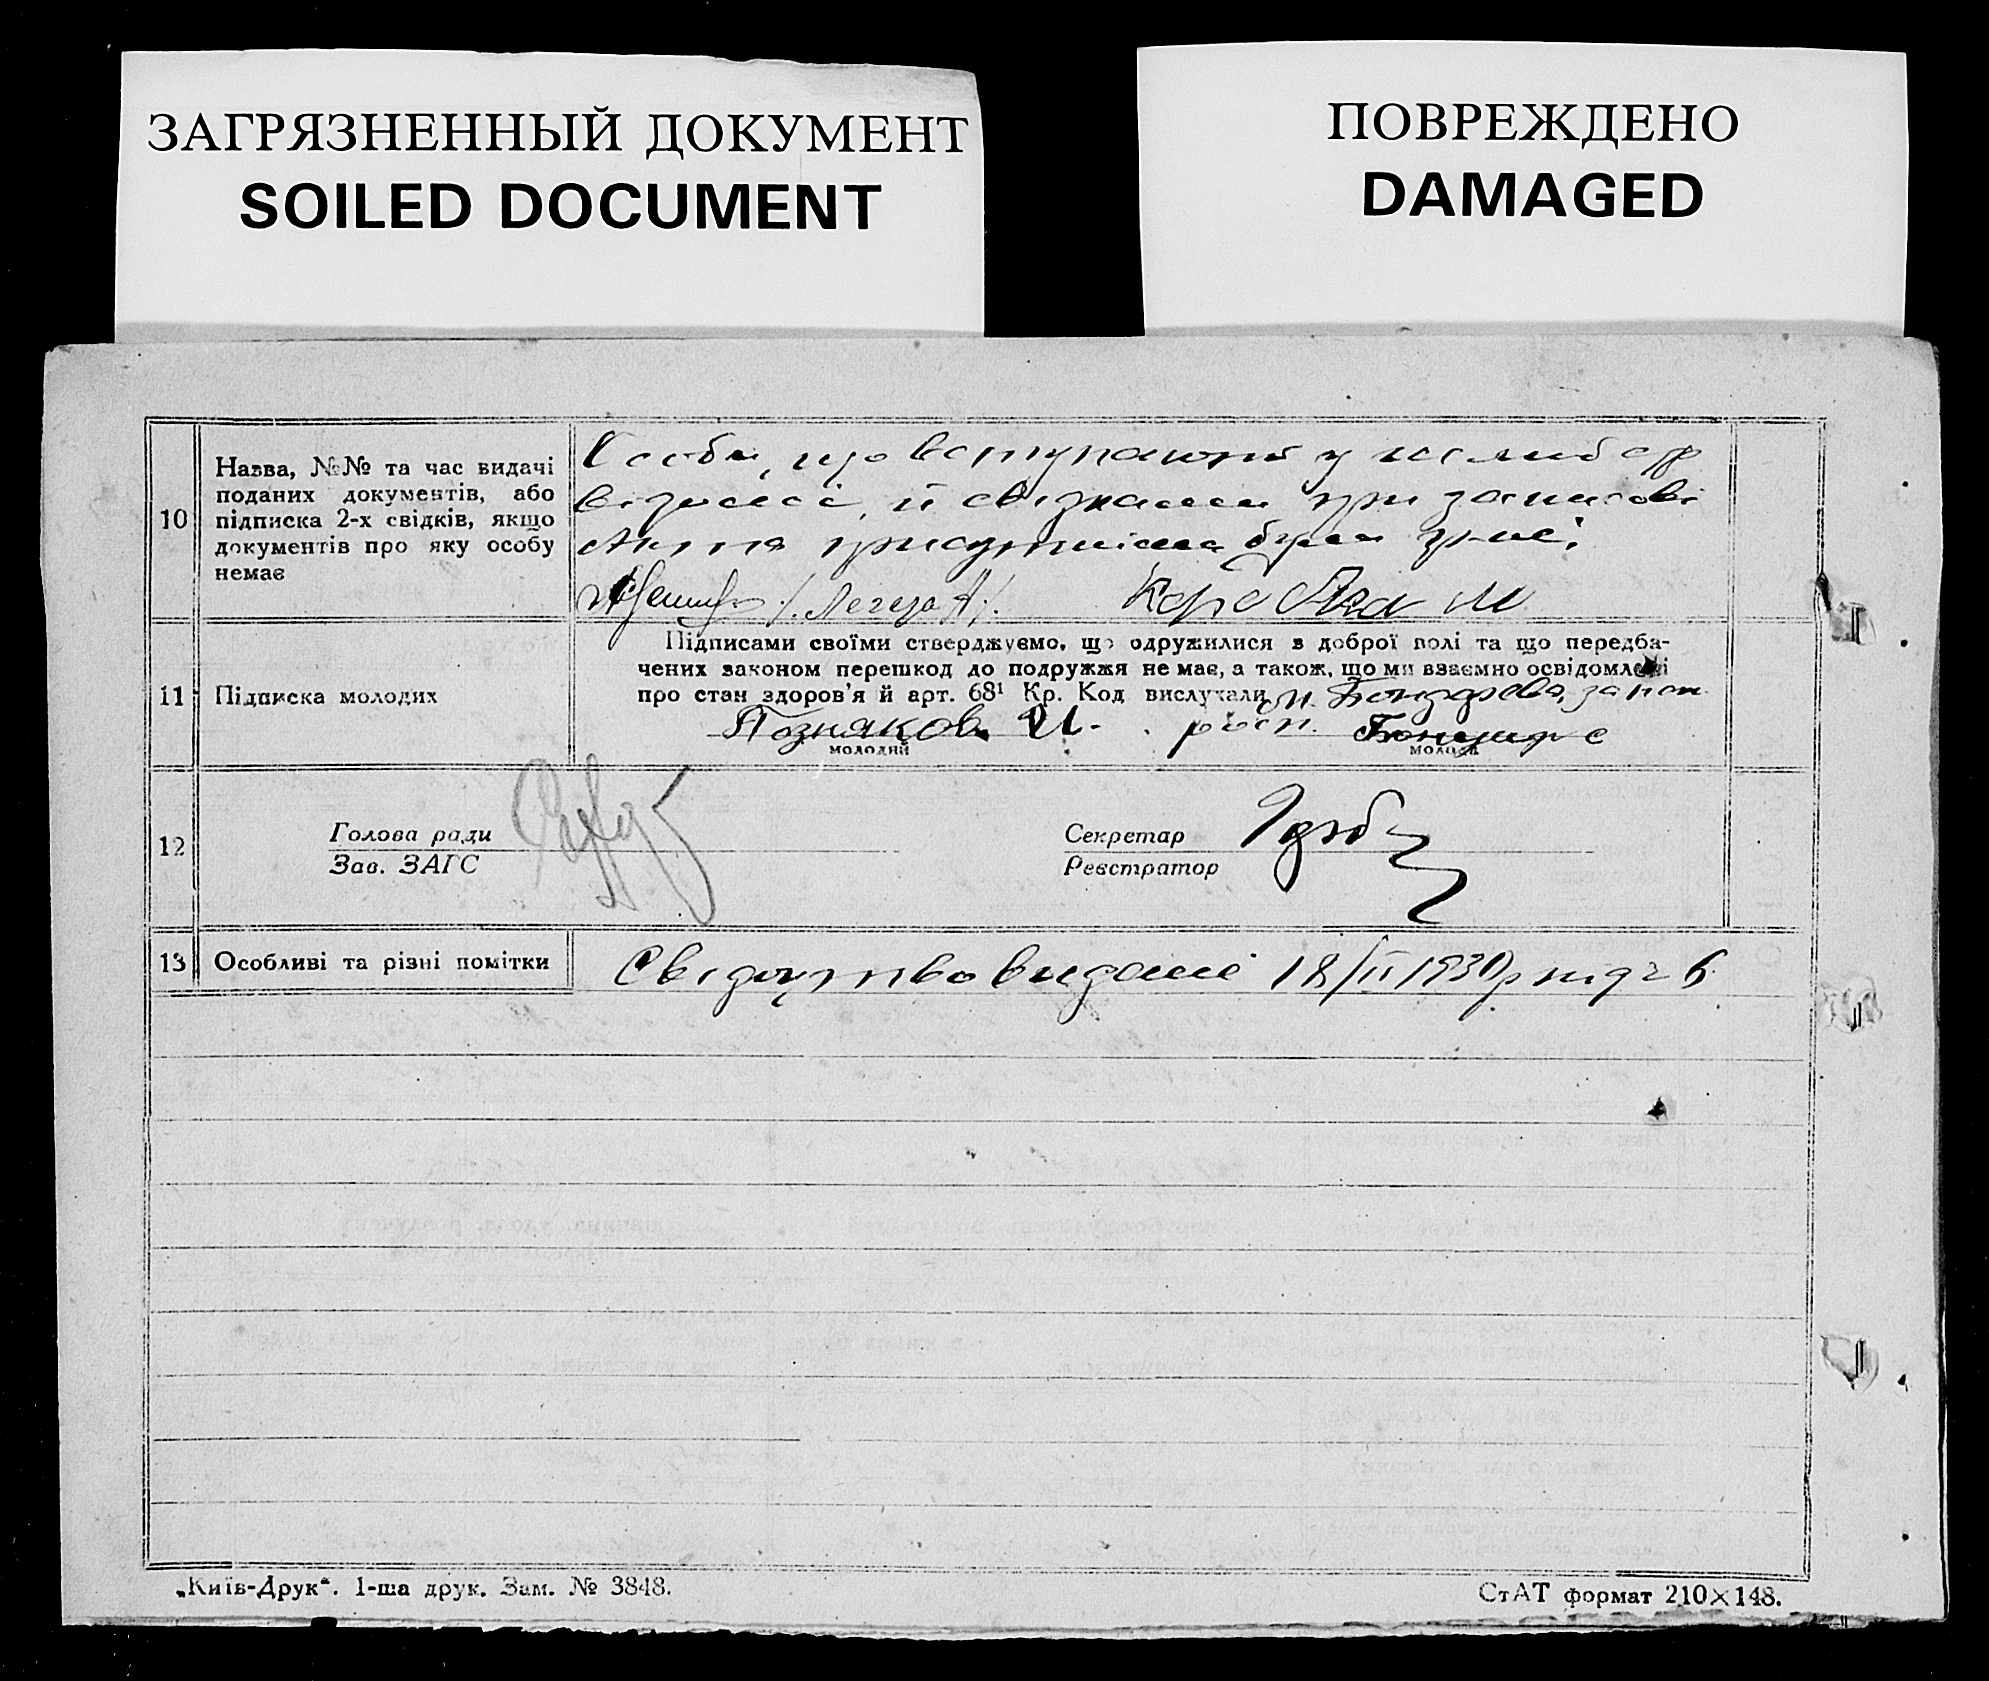 ЗАГРЯЗНЕННЫЙ ДОКУМЕНТ
SOILED DOCUMENT
ПОВРЕЖДЕНО
DAMAGED
10
Назва, №№ та час видачі
поданих документів, або
підписка 2-х свідків, якщо
документів про яку особу
немає
Особи, що вступають у шлюб
відомі, й свідками при записові
Акта присутніми були
/Легеза А/.
11
Підписка молодих
Підписами своїми стверджуємо, що одружилися з доброї волі та що передба-
чених законом перешкод до подружжя не має, а також, що ми взаємно освідомлені
про стан здоров'я й арт. 68¹ Кр. Код вислухали
Позняков И.
молодий
молода
12
Голова ради
Зав. ЗАГС
Секретар
Реєстратор
13
Особливі та різні помітки
Свідоцтво видане 18/II 1930р під ч 6
„Київ-Друк“. 1-ша друк. Зам. № 3848.
СтАТ формат 210×148.